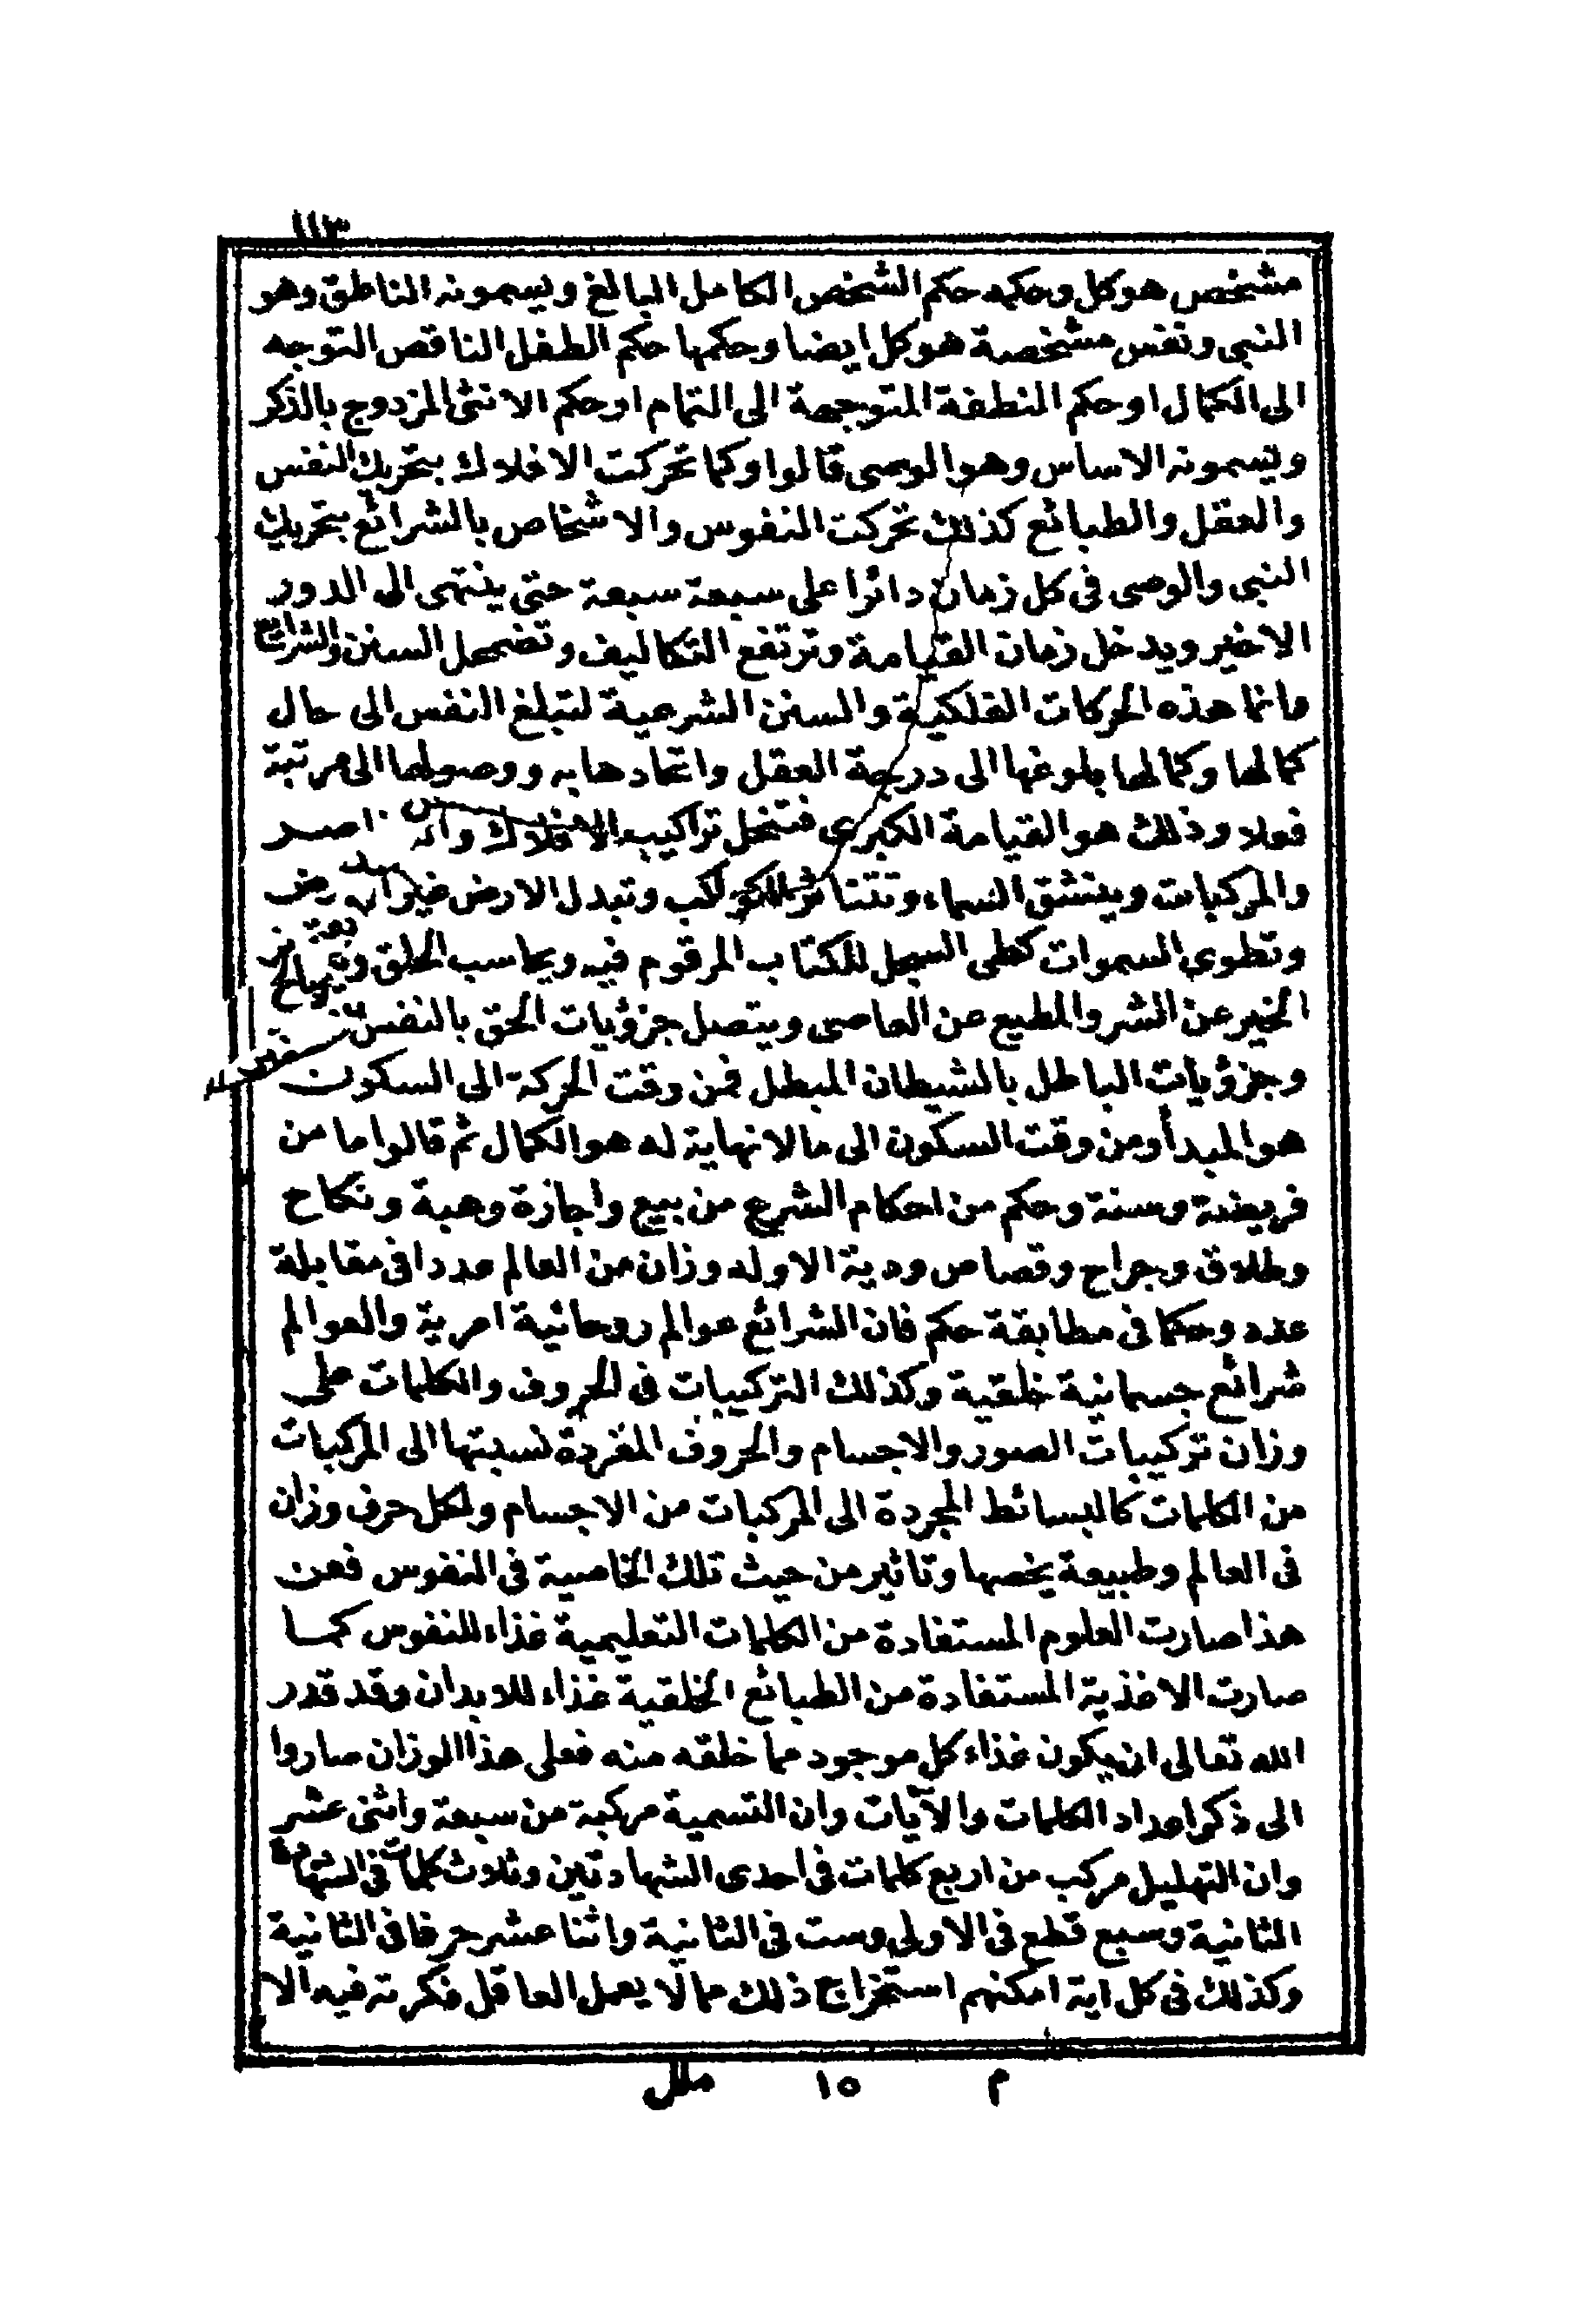 ١١٣
مشخص هو كل وحكمه حكم الشخص الكامل البالغ ويسمونه الناطق وهو
النبي ونفس مشخصة هو كل ايضا وحكمها حكم الطفل الناقص التوجه
الى الكمال او حكم النطفة المتوجهة الى التمام او حكم الانثى المزدوج بالذكر
ويسمونه الاساس وهو الوصى قالوا وكما تحركت الافلاك بتحريك النفس
والعقل والطبائع كذلك تحركت النفوس والاشخاص بالشرائع بتحريك
النبى والوصى فى كل زمان دائرا على سبعة سبعة حتى ينتهى الى الدور
الاخير ويدخل زمان القيامة وترتفع التكاليف وتضمحل السنن والشرائع
وانما هذه الحركات الفلكية والسنن الشرعية لتبلغ النفس الى حال
كمالها وكمالها بلوغها الى درجة العقل واتحادها به ووصولها الى مرتبة
فعلا وذلك هو القيامة الكبرى فتنحل تراكيب الافلاك
والمركبات وينشق السماء وتتناثر الكواكب وتبدل الارض غير
وتطوى السموات كطى السجل للكتاب المرقوم فيه ويحاسب الخلق
الخير عن الشر والمطيع عن العاصى ويتصل جزؤيات الحق بالنفس
وجزؤيات الباطل بالشيطان المبطل فمن وقت الحركة الى السكون
هو المبدأ ومن وقت السكون الى مالا نهاية له هو الكمال ثم قالوا ما من
فريضة وسنة وحكم من احكام الشرع من بيع واجازة وهبة ونكاح
وطلاق وجراح وقصاص ودية الا وله وزان من العالم عددا فى مقابلة
عدد وحكما فى مطابقة حكم فان الشرائع عوالم روحانية امرية والعوالم
شرائع جسمانية خلقية وكذلك التركيبات فى الحروف والكلمات على
وزان تركيبات الصور والاجسام والحروف المفردة نسبتها الى المركبات
من الكلمات كالبسائط المجردة الى المركبات من الاجسام ولكل حرف وزان
فى العالم وطبيعة يخصها وتاثير من حيث تلك الخاصية فى النفوس فعن
هذا صارت العلوم المستفادة من الكلمات التعليمية غذاء للنفوس كما
صارت الاغذية المستفادة من الطبائع الخلقية غذاء للابدان وقد قدر
الله تعالى ان يكون غذاء كل موجود مما خلقه منه فعلى هذا الوزان صاروا
الى ذكر اعداد الكلمات والآيات وان التسمية مركبة من سبعة واثنى عشر
وان التهليل مركب من اربع كلمات فى احدى الشهادتين وثلاث كلمات فى الشهادة
الثانية وسبع قطع فى الاولى وست فى الثانية واثنا عشر حرفا فى الثانية
وكذلك فى كل اية امكنهم استخراج ذلك مما لا يعمل العاقل فكرته فيه الا
م ١٥ ملل